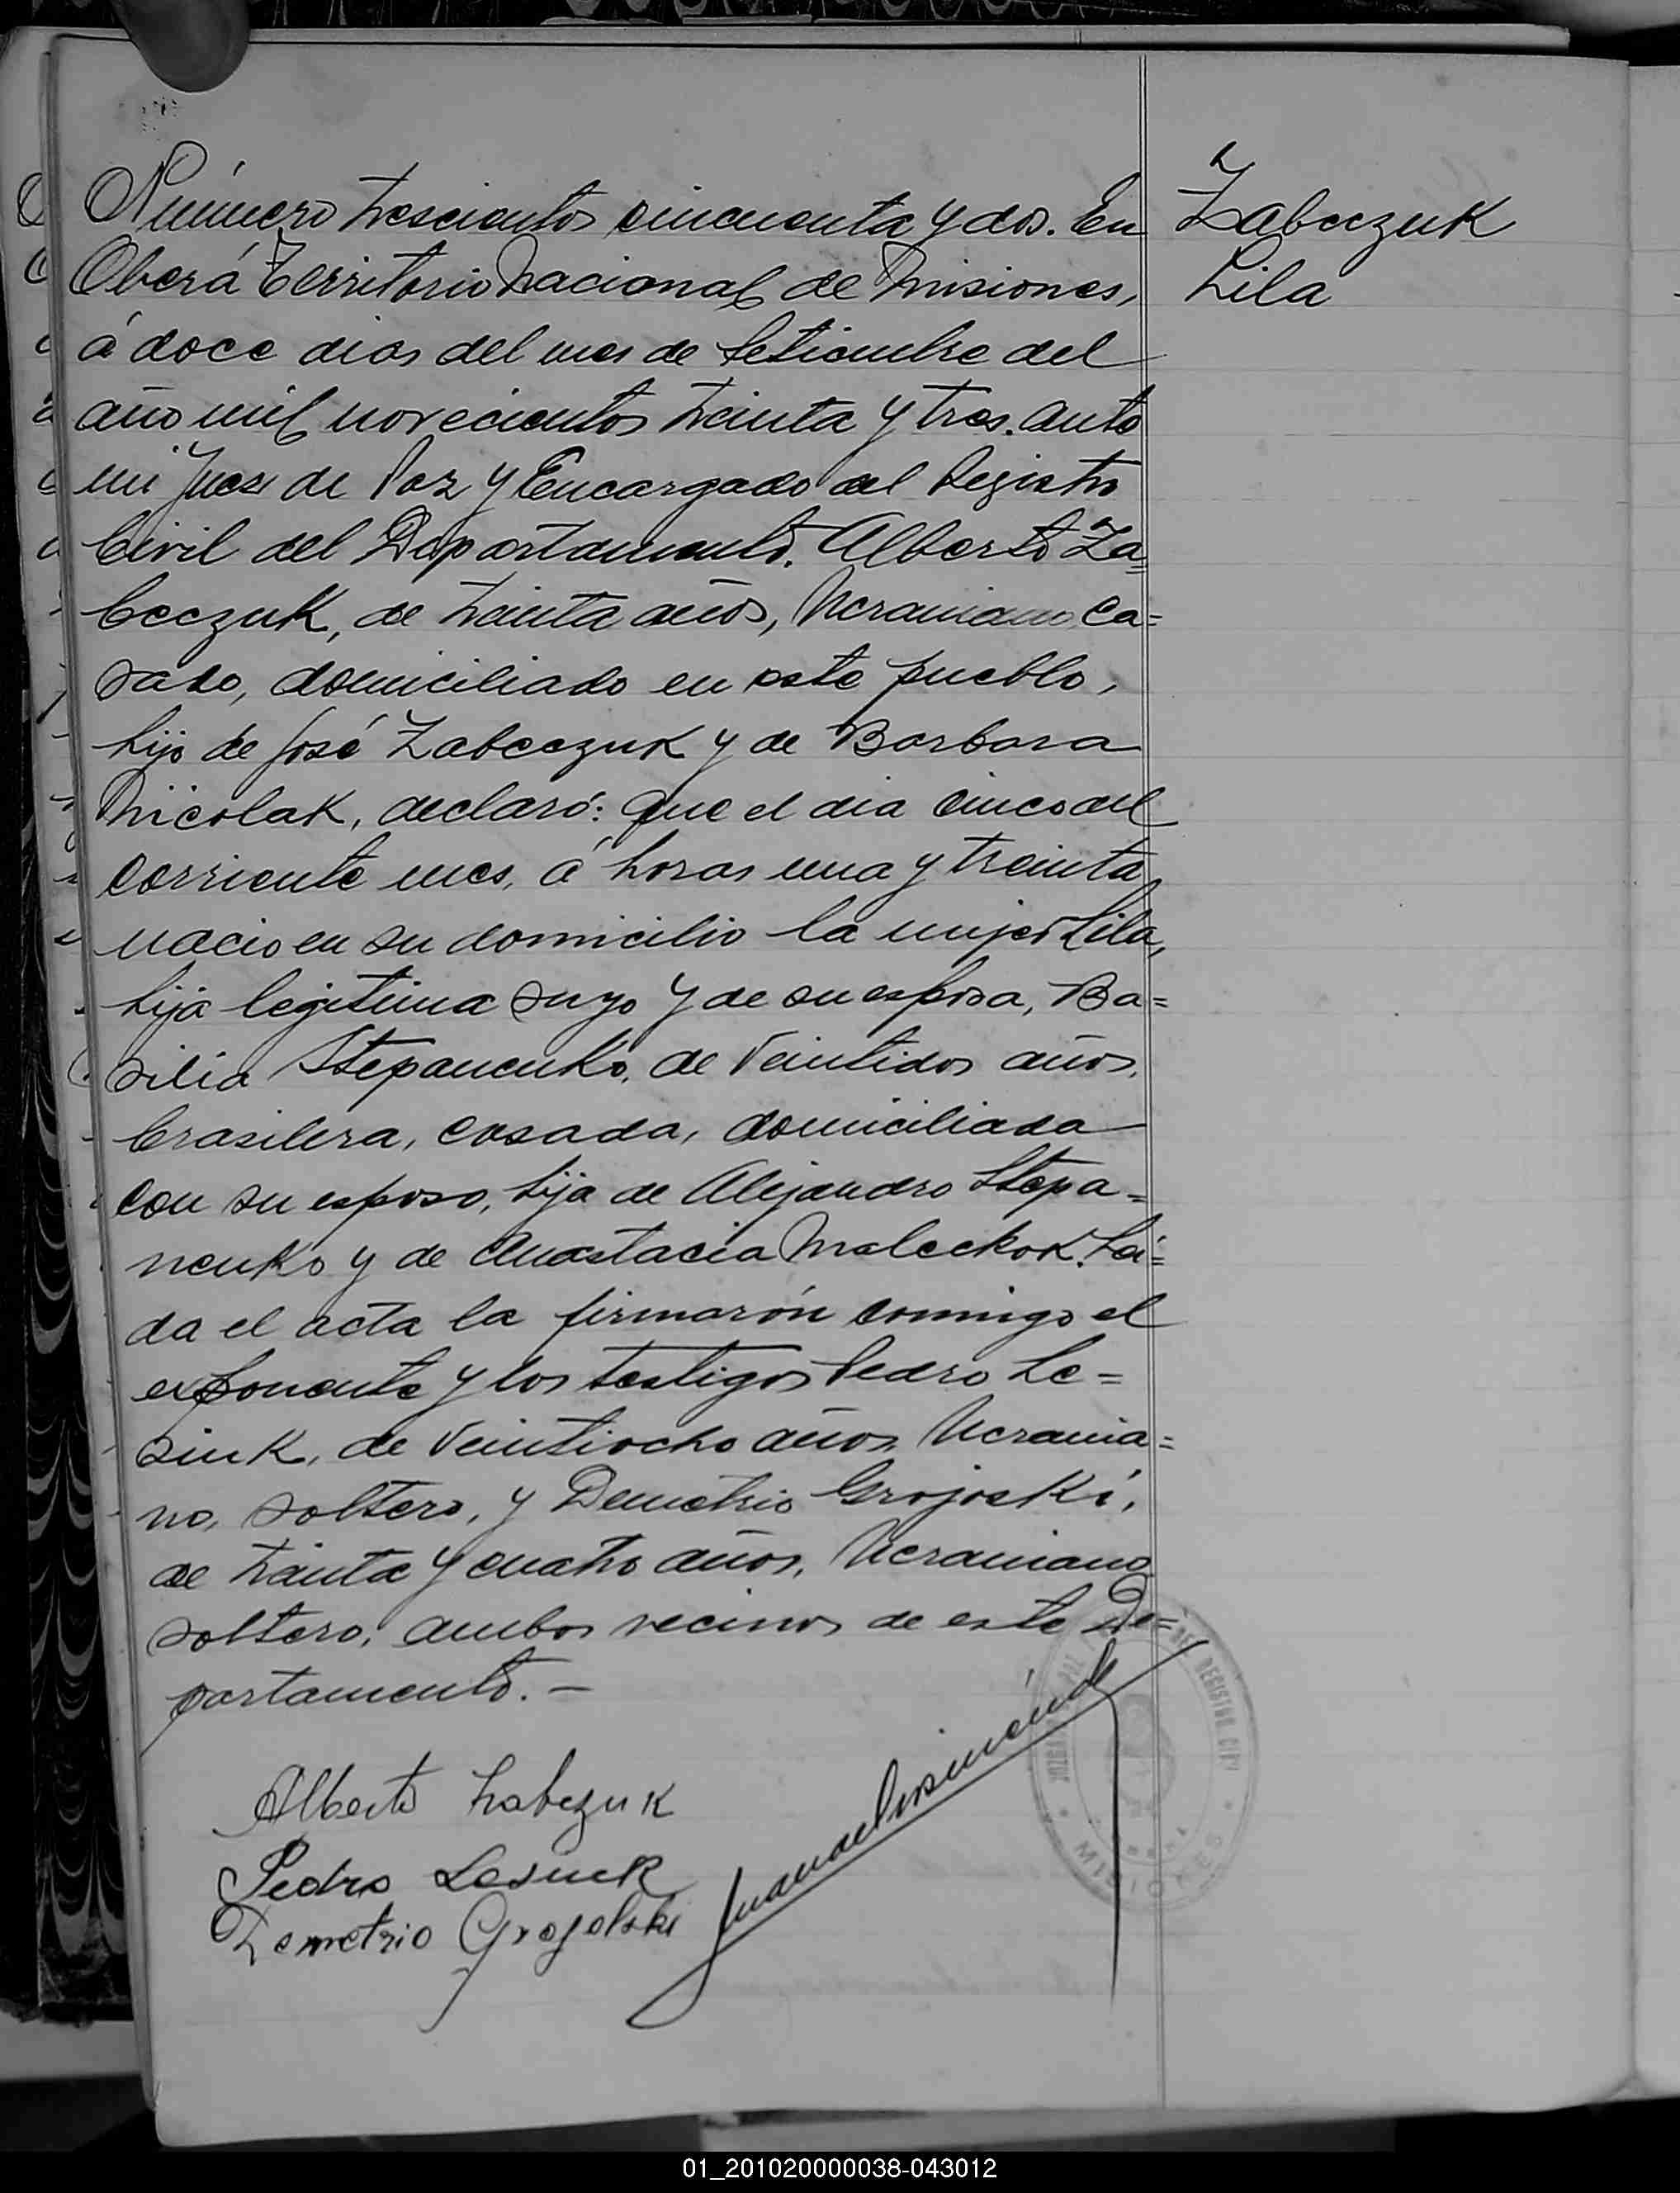 Número trescientos cincuenta y dos. En
Oberá Territorio Nacional de Misiones,
á doce dias del mes de Setiembre del
año mil novecientos treinta y tres. Ante
mi Juez de Paz y Encargado del Registro
Civil del Departamento. Alberto Za=
beczuk, de treinta años, Ucraniano, Ca=
sado, domiciliado en este pueblo,
hijo de José Zabeczuk y de Barbara
Nicolak, declaró: Que el dia cinco del
corriente mes, á horas una y treinta
nacio en su domicilio la mujer Lila,
hija legitima suyo y de su esposa, Ba=
silia Stepanenko, de Veintidos años,
brasilera, casada, domiciliada
con su esposo, hija de Alejandro Stepa=
nenko y de Anastacia Maleckok. Lei=
da el acta la firmarón conmigo el
exponente y los testigos Pedro Le=
siuk, de Veintiocho años, Ucrania=
no, soltero, y Demetrio Grojoski,
de treinta y cuatro años, Ucraniano
soltero, ambos vecinos de este De=
partamento. —
Zabeczuk
Lila
Alberto Zabczuk
Pedro Lesuck
Demetrio Grojolski
REGISTRO CIVIL
MISIONES
01_201020000038-043012